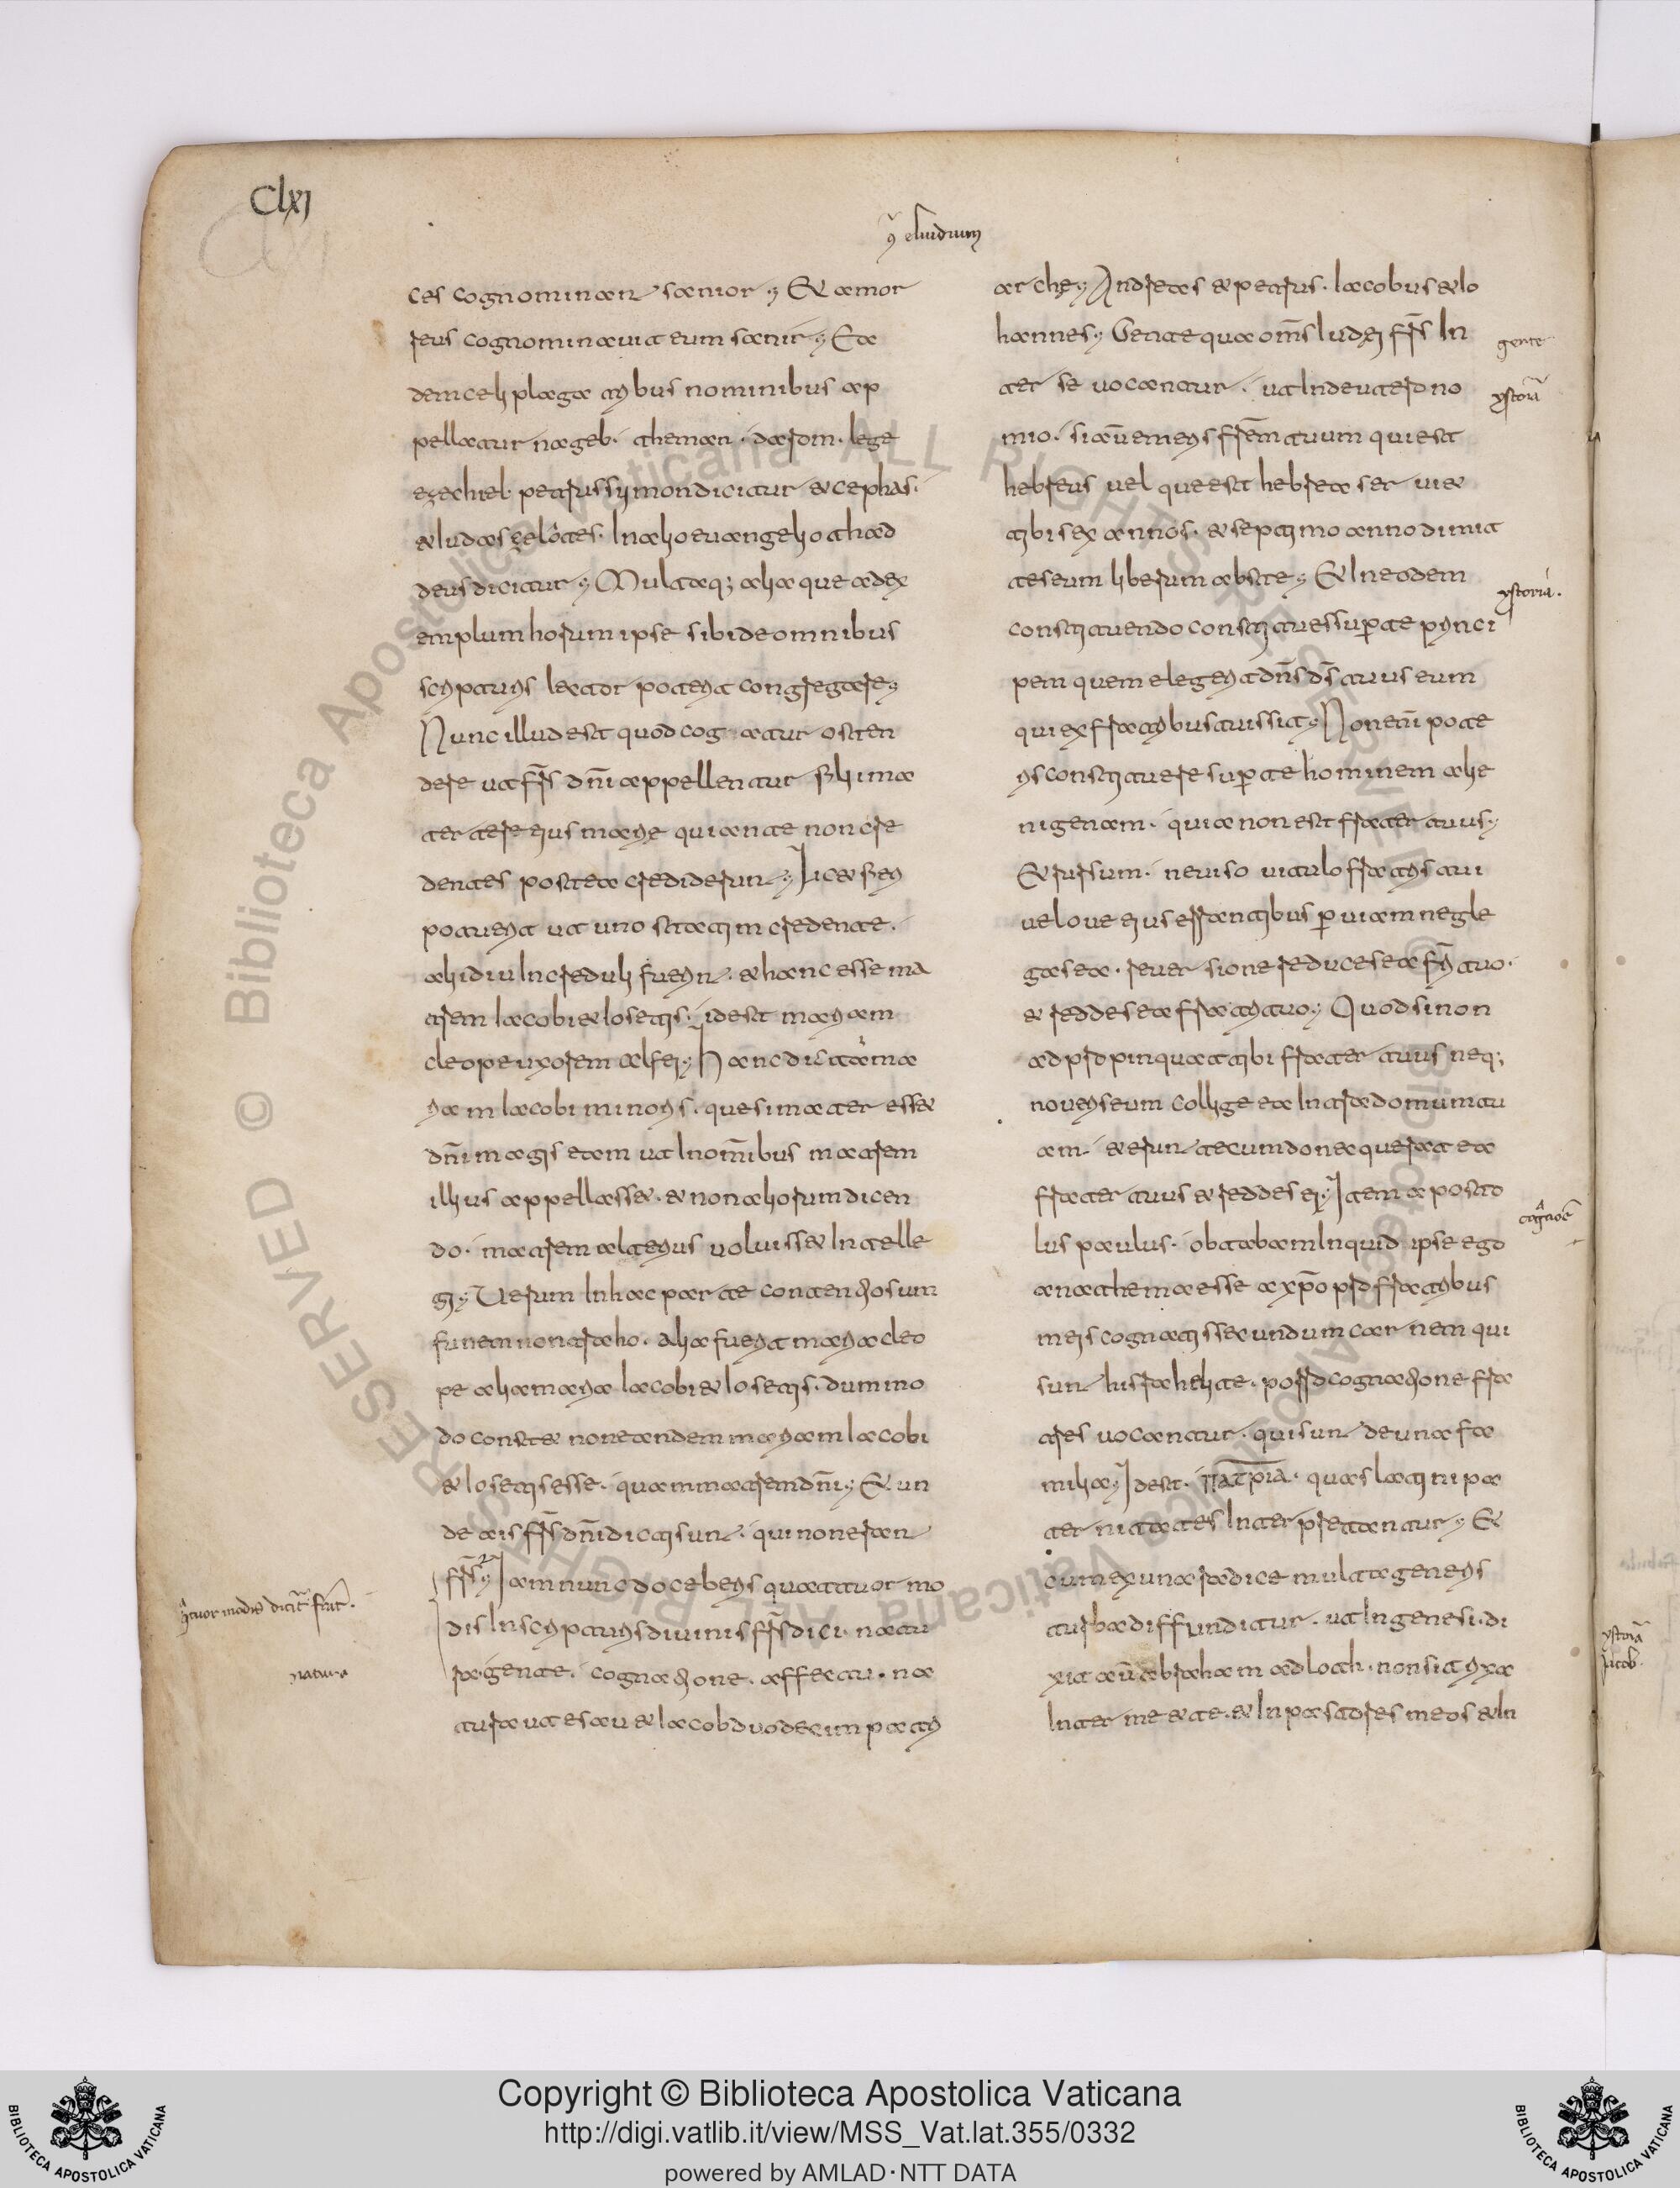 Clxj
ꝯ eluidium
ces cognominant sanior. Et amor
reus cognominauit eum sanir. Eta
dem celi plaga tribus nominibus ap
pellatur nageb. theman. darom. lege
ezechiel. petrus symon dicitur et cephas.
et Iudas zelòtes. In alio euangelio thad
deus dicitur. Multaq; alia que ad ex
emplum horum ipse sibi de omnibus
scripturis lector poterit congregare.
Nunc illud est quod cogatur osten
dere ut frs dni appellentur filii ma
tertere eius marie qui ante non cre
dentes postea crediderunt. Licet fieri
potuerit ut uno statim credente.
alii diu Increduli fuerint. et hanc esse ma
trem Iacobi et Iosetis. idest mariam
cleope uxorem alfei. Hanc dictam ma
riam Iacobi minoris. que si mater esset
dni magis etam ut In omnibus matrem
illius appellasset. et non aliorum dicen
do. matrem alterius uoluisset Intelle
gi. Uerum In hac parte contentiosum
funem non traho. alia fuerit maria cleo
pe alia maria Iacobi et Iosetis. dummo
do constet non eandem mariam Iacobi
et Iosetis esse. quam matrem dni. Et un
de ais frs dni dicti sunt. qui non erant
frs. Iam nunc doceberis quattuor mo
dis In scripturis diuinis frs dici. natu
ra. gente. cognatione. affectu. na
tura ut esau et Iacob duodecim patri
arche. Andreas et petrus. Iacobus et Io
hannes. Gente qua oms Iudei frs In
ter se uocantur. ut In deutero no
mio. si au emeris frem tuum qui est
hebreus uel que est hebrea seruiet
tibi sex annos. et septimo anno dimit
tes eum liberum abs te. Et In eodem
constituendo constitues super te princi
pem quem elegerit dns ds tuus eum
qui ex fratribus tuis sit. Non eni pote
ris constituere super te hominem alie
nigenam. quia non est frater tuus.
Et rursum. ne uiso uitulo fratris tui
uel oue eius errantibus per uiam negle
gas ea. reuersione reduces ea fri tuo.
et reddes ea fratri tuo. Quod si non
adpropinquat tibi frater tuus neq;
noueris eum collige ea Intra domum tu
am. et erunt tecum donec querat ea
frater tuus et reddes ei. Item aposto
lus paulus. obtabam Inquid ipse ego
anathema esse a xpo pro fratribus
meis cognatis secundum carnem qui
sunt Israhelite. porro cognatione fra
tres uocantur. qui sunt de una fa
milia. Idest. πατρια. quas latini pa
ternitates Interpretantur. Et
cum ex una radice multa generis
turba diffunditur. ut In genesi. di
xit au abraham ad loth. non sit rixa
Inter me et te. et Inter pastores meos et In
gente
ystoriā
ystoriā.
cognatiōe
ystoriā
iacob.
qͣtuor modis dicit̃ frat̃.
natura
Copyright © Biblioteca Apostolica Vaticana
http://digi.vatlib.it/view/MSS_Vat.lat.355/0332
powered by AMLAD·NTT DATA
BIBLIOTECA APOSTOLICA VATICANA
BIBLIOTECA APOSTOLICA VATICANA
© Biblioteca Apostolica Vaticana ALL RIGHTS RESERVED